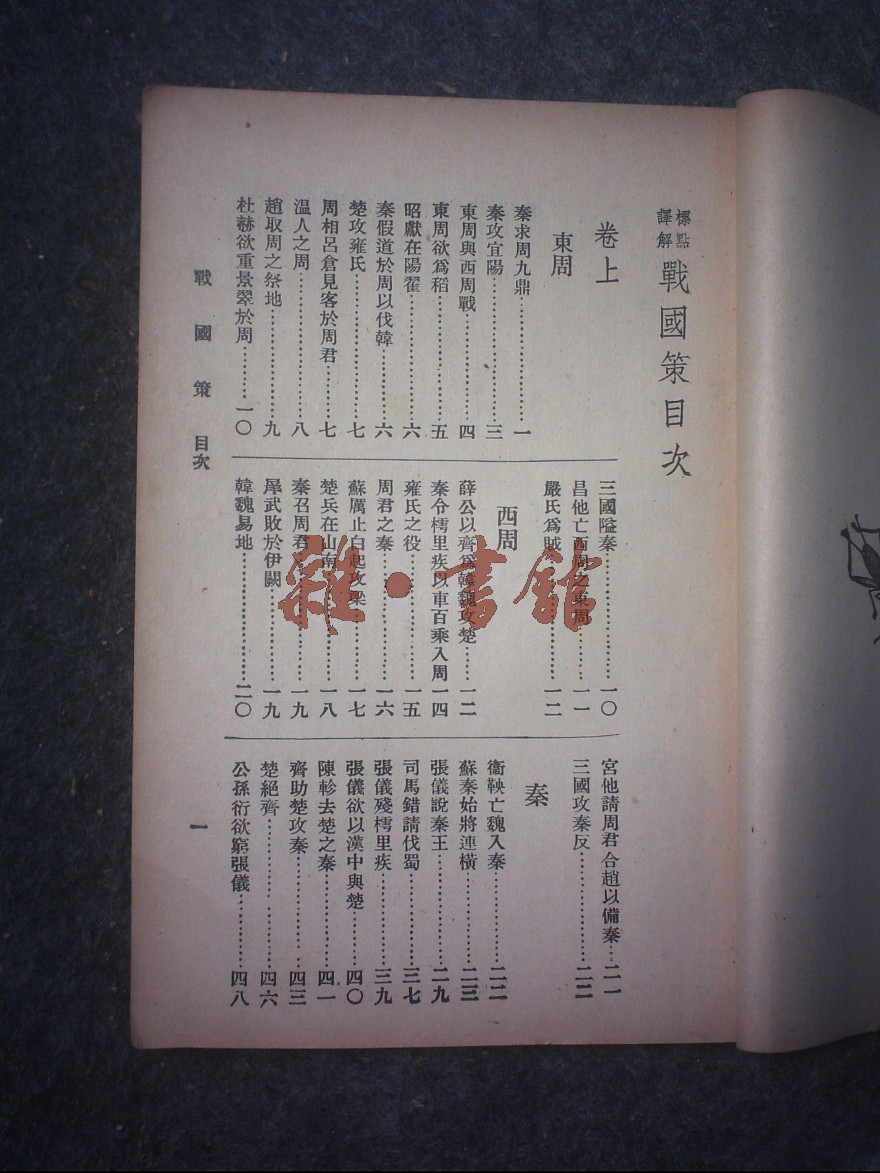 標點
譯解
戰國策目次
卷上
東周
秦求周九鼎…………一
秦攻宜陽…………三
東周與西周戰…………四
東周欲爲稻…………五
昭獻在陽翟…………六
秦假道於周以伐韓…………六
楚攻雍氏…………七
周相呂倉見客於周君…………七
温人之周…………八
趙取周之祭地…………九
杜赫欲重景翠於周…………一〇
三國隘秦…………一〇
昌他亡西周之東周…………一一
嚴氏爲賊…………一二
西周
薛公以齊爲韓魏攻楚…………一二
秦令樗里疾以車百乘入周 一四
雍氏之役…………一五
周君之秦…………一六
蘇厲止白起攻梁…………一七
楚兵在山南…………一八
秦召周君…………一九
犀武敗於伊闕…………一九
韓魏易地…………二〇
宮他請周君合趙以備秦…二一
三國攻秦反…………二二
秦
衞鞅亡魏入秦…………二二
蘇秦始將連橫…………二三
張儀說秦王…………二九
司馬錯請伐蜀…………三七
張儀殘樗里疾…………三九
張儀欲以漢中與楚…………四〇
陳軫去楚之秦…………四一
齊助楚攻秦…………四三
楚絕齊…………四六
公孫衍欲窮張儀…………四八
戰國策 目次
一
雜·書館